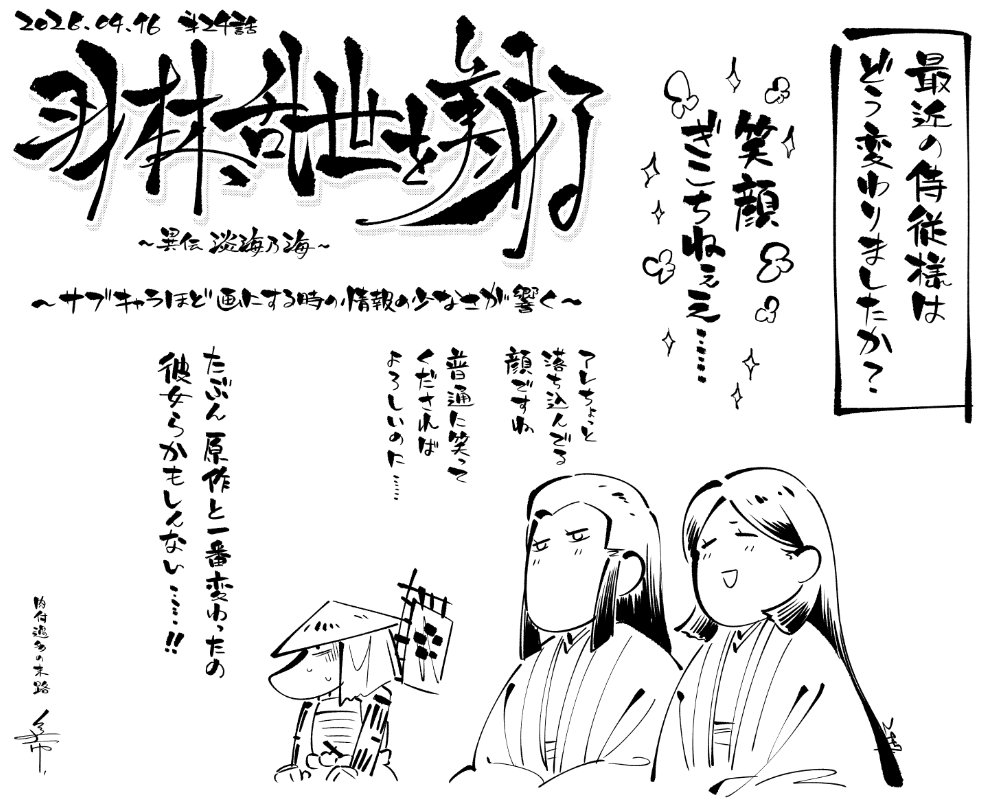 2026.04.16 第24話
羽林、乱世を翔る
~異伝 淡海乃海~
~サブキャラほど画にする時の情報の少なさが響く~
最近の侍従様は
どう変わりましたか?
笑顔
ぎこちねぇえ……
アレちょっと
落ち込んでる
顔ですね
普通に笑って
くだされば
よろしいのに……
たぶん原作と一番変わったの
彼女らかもしんない……!!
肉付過多の末路